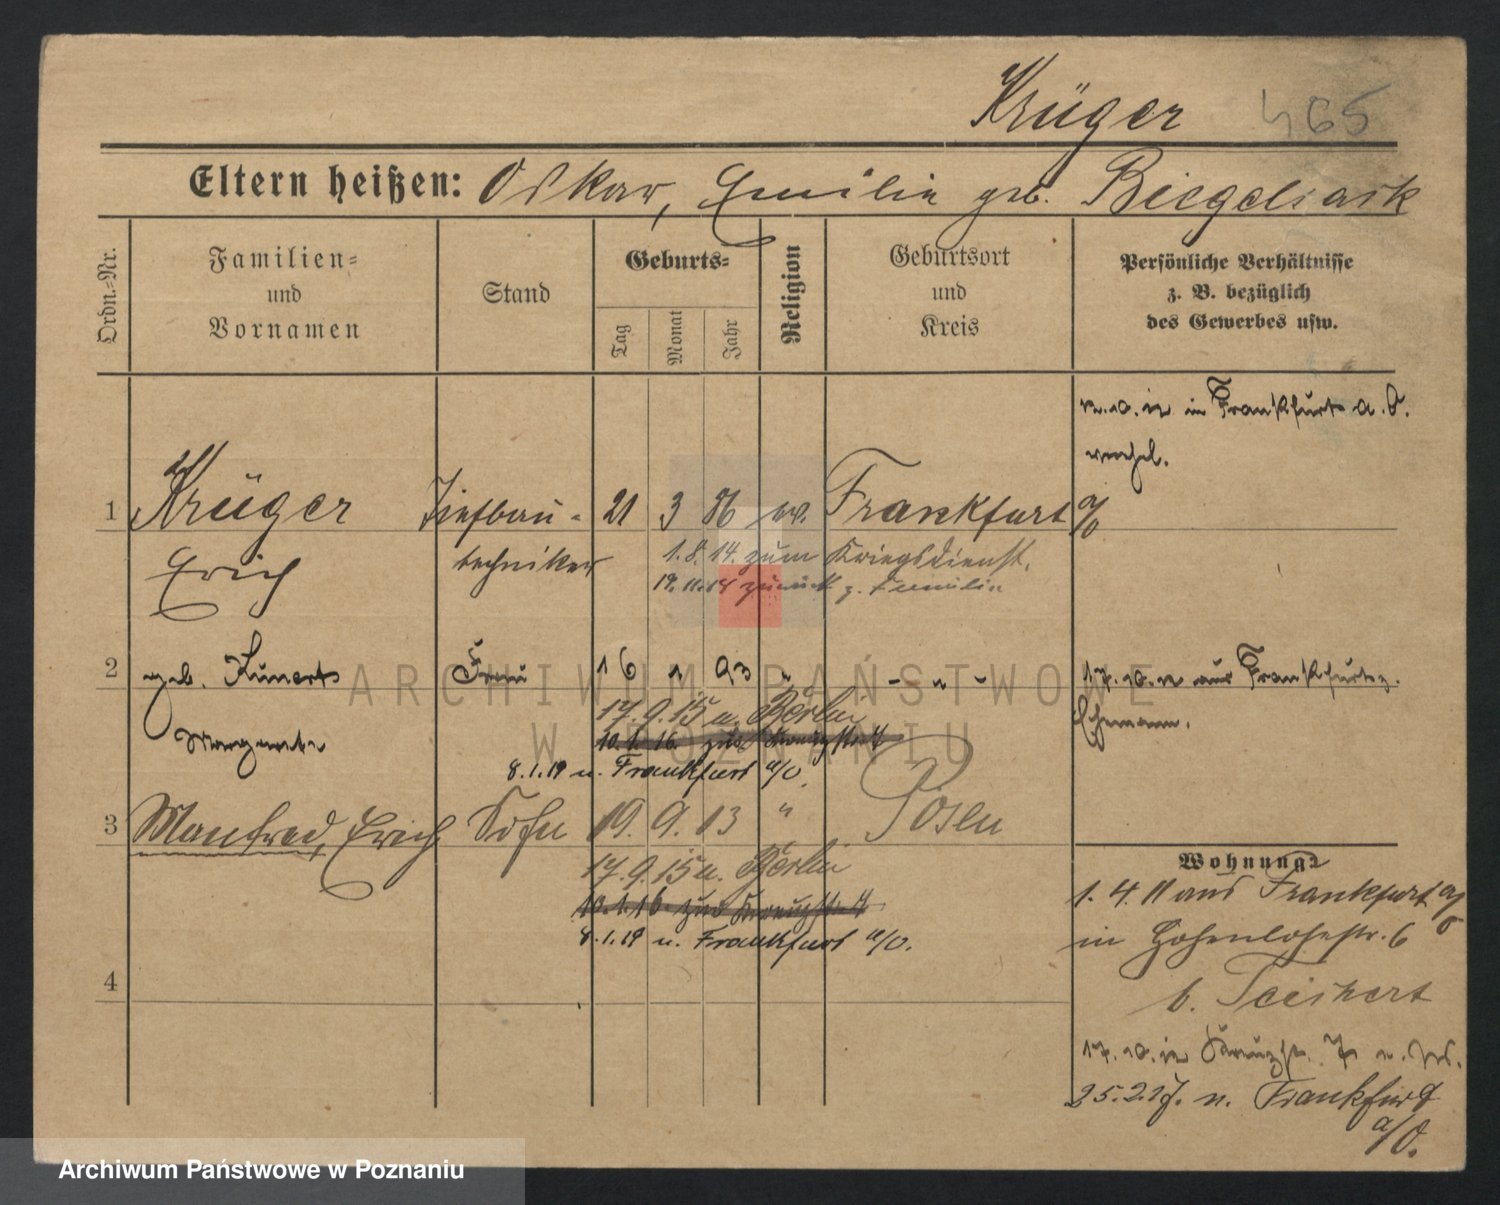 Krüger 465
Eltern heißen: Oskar, Emilie geb.
Ordn.-Nr.
Familien-
und
Vornamen
Stand
Geburts-
Tag
Monat
Jahr
Religion
Geburtsort
und
Kreis
Persönliche Verhältnisse
z. B. bezüglich
des Gewerbes usw.
in Frankfurt a. O.
1 Krüger Tiefbau- 21 3 86 ev. Frankfurt a/O
Erich techniker 1.8.14. zum Kriegsdienst.
19.11.18 zurück z. Familie
2 geb. Kunert Frau 16 1 93 " - " - 17.10.12 aus Frankfurt z.
Ehemann.
Margarete
17.9.15 n. Berlin
10.1.16 zur. Kreuzstr.
8.1.19 n. Frankfurt a/O.
3 Manfred, Erich Sohn 19. 9. 13 " Posen
17.9.15 n. Berlin
10.1.16 zur. Kreuzstr.
8.1.19 n. Frankfurt a/O.
4
Wohnung
1.4.11 aus Frankfurt a/O
in Hohenlohestr. 6
b.
17.10.12 Kreuzstr. 7
n. Frankfurt
a/O.
ARCHIWUM PAŃSTWOWE
W POZNANIU
Archiwum Państwowe w Poznaniu